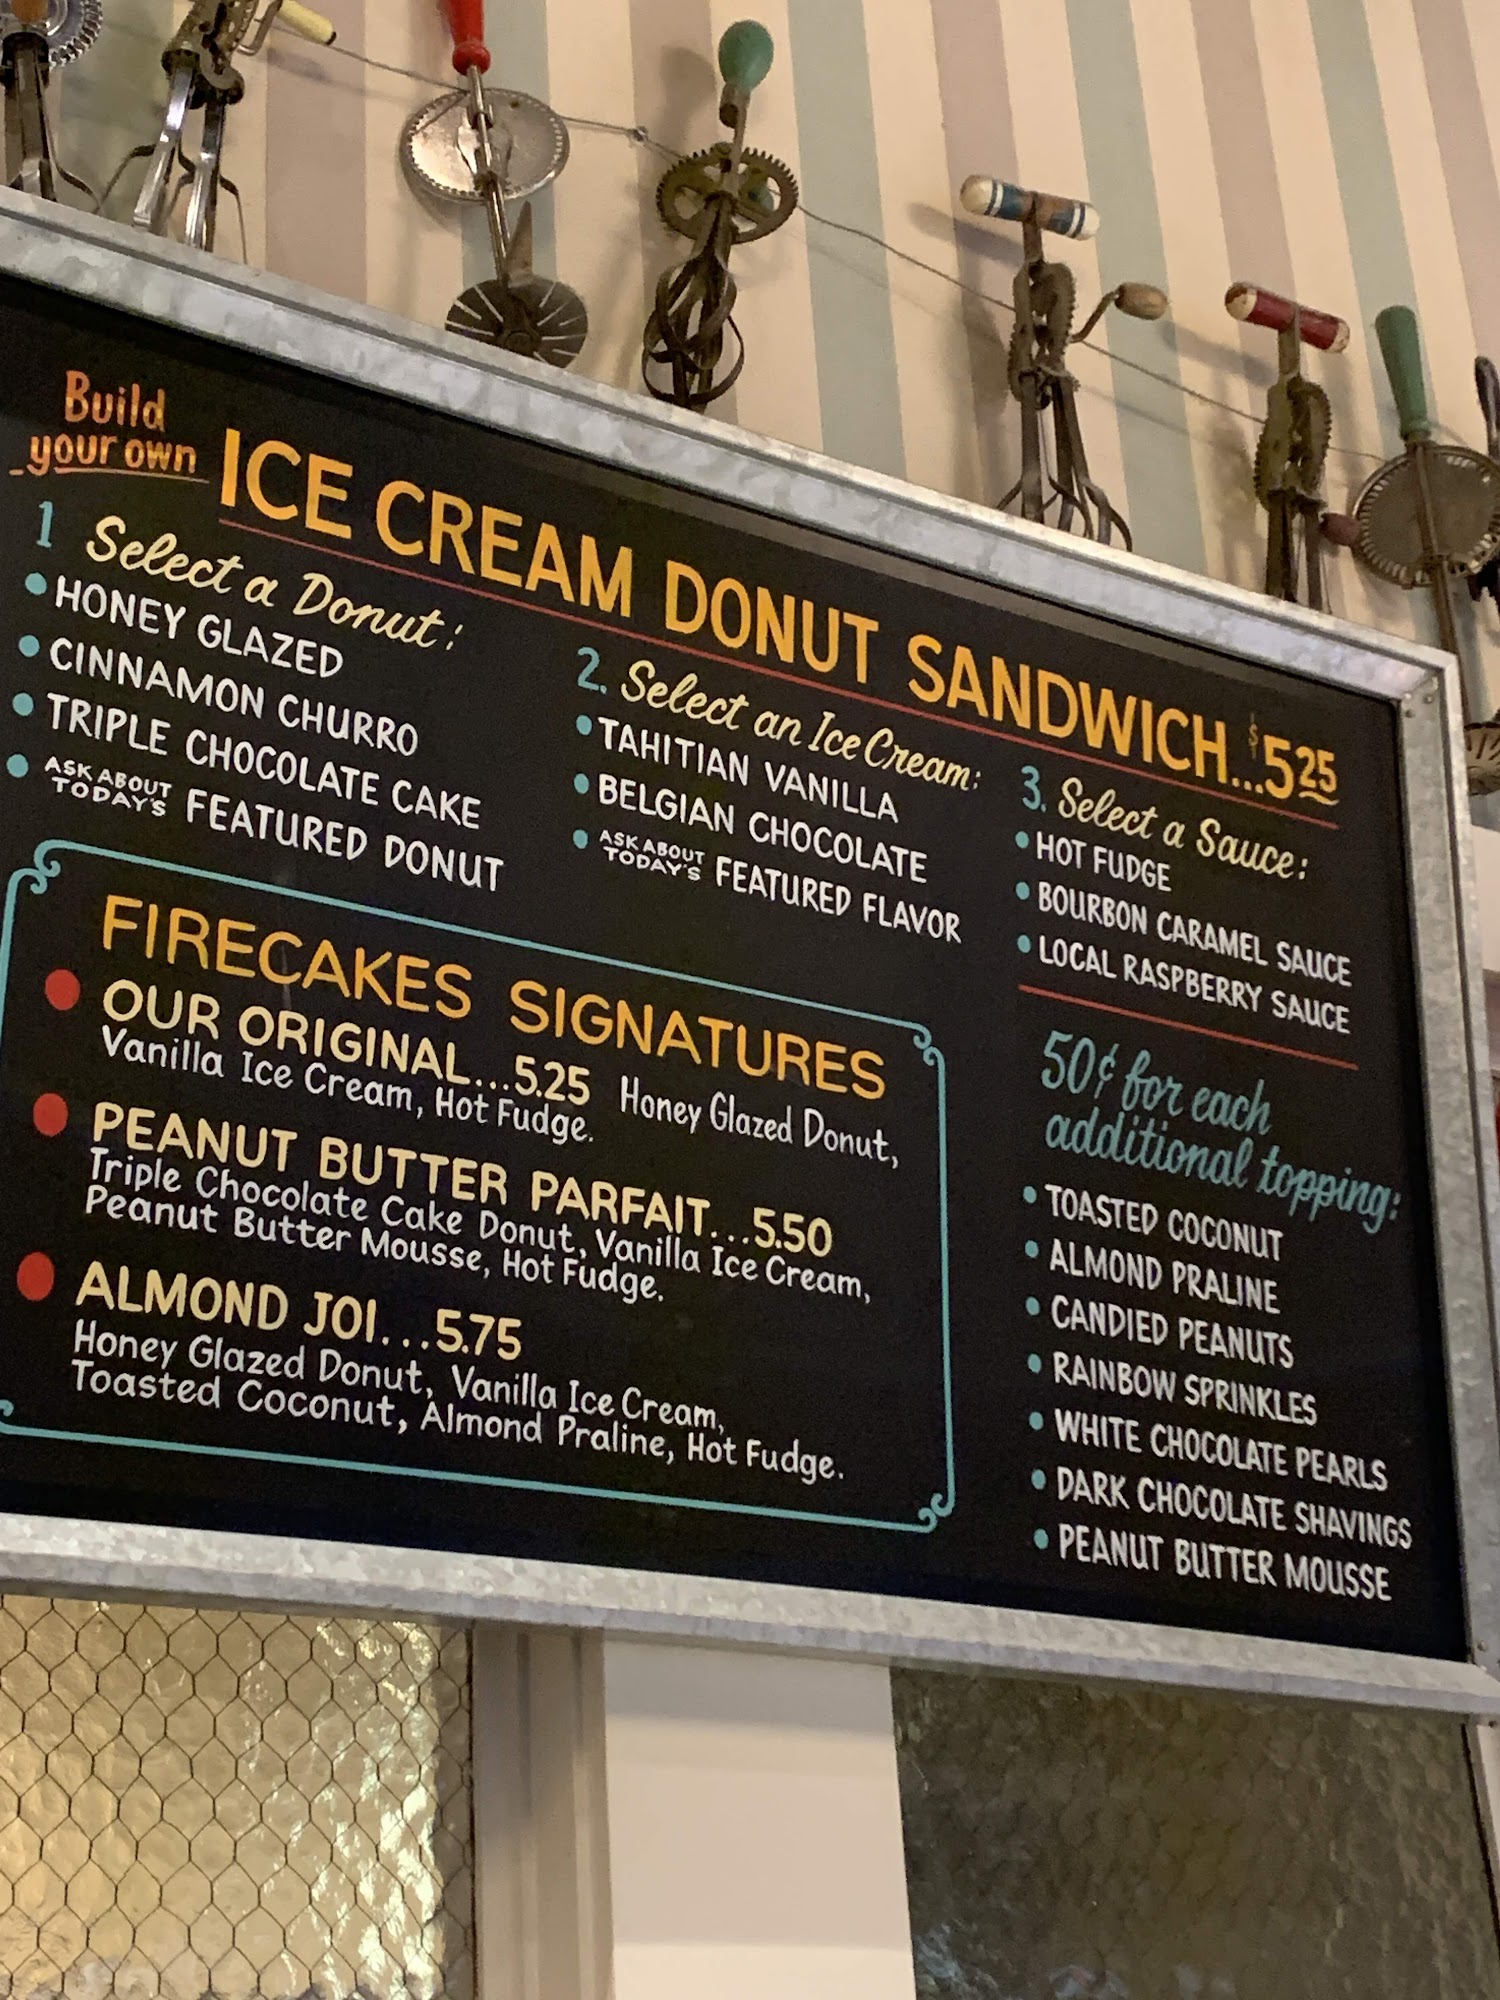 Build
your own
ICE CREAM DONUT SANDWICH...$5.25
1 Select a Donut:
• HONEY GLAZED
• CINNAMON CHURRO
• TRIPLE CHOCOLATE CAKE
• ASK ABOUT TODAY'S FEATURED DONUT
2. Select an Ice Cream:
• TAHITIAN VANILLA
• BELGIAN CHOCOLATE
• ASK ABOUT TODAY'S FEATURED FLAVOR
3. Select a Sauce:
• HOT FUDGE
• BOURBON CARAMEL SAUCE
• LOCAL RASPBERRY SAUCE
50¢ for each
additional topping:
• TOASTED COCONUT
• ALMOND PRALINE
• CANDIED PEANUTS
• RAINBOW SPRINKLES
• WHITE CHOCOLATE PEARLS
• DARK CHOCOLATE SHAVINGS
• PEANUT BUTTER MOUSSE
FIRECAKES SIGNATURES
• OUR ORIGINAL...5.25 Honey Glazed Donut,
Vanilla Ice Cream, Hot Fudge.
• PEANUT BUTTER PARFAIT...5.50
Triple Chocolate Cake Donut, Vanilla Ice Cream,
Peanut Butter Mousse, Hot Fudge.
• ALMOND JOI...5.75
Honey Glazed Donut, Vanilla Ice Cream,
Toasted Coconut, Almond Praline, Hot Fudge.